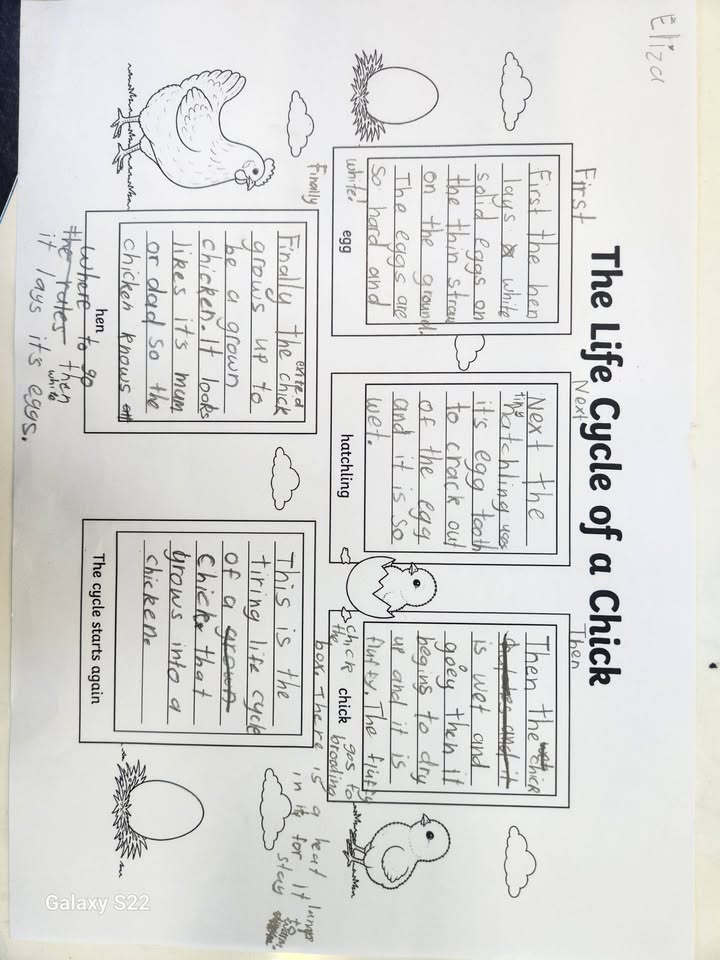 Eliza
The Life Cycle of a Chick
First
First the hen
lays white
solid eggs on
the thin straw
on the ground.
The eggs are
so hard and
white!
egg
Next
Next the
tiny hatchling uses
it's egg tooth
to crack out
of the egg
and it is so
wet.
hatchling
Then
Then the chick
is wet and
goey then it
begins to dry
up and it is
fluffy. The fluffy
chick gos to
the brooding
box. There is a heat
lamp
in it for it to
stay
chick
Finally
Finally the exited chick
grows up to
be a grown
chicken. It looks
likes it's mum
or dad so the
chicken knows
where to go
the rules then
it lays it's white eggs.
hen
This is the
tiring life cycle
of a grown
chick that
grows into a
chicken.
The cycle starts again
Galaxy S22